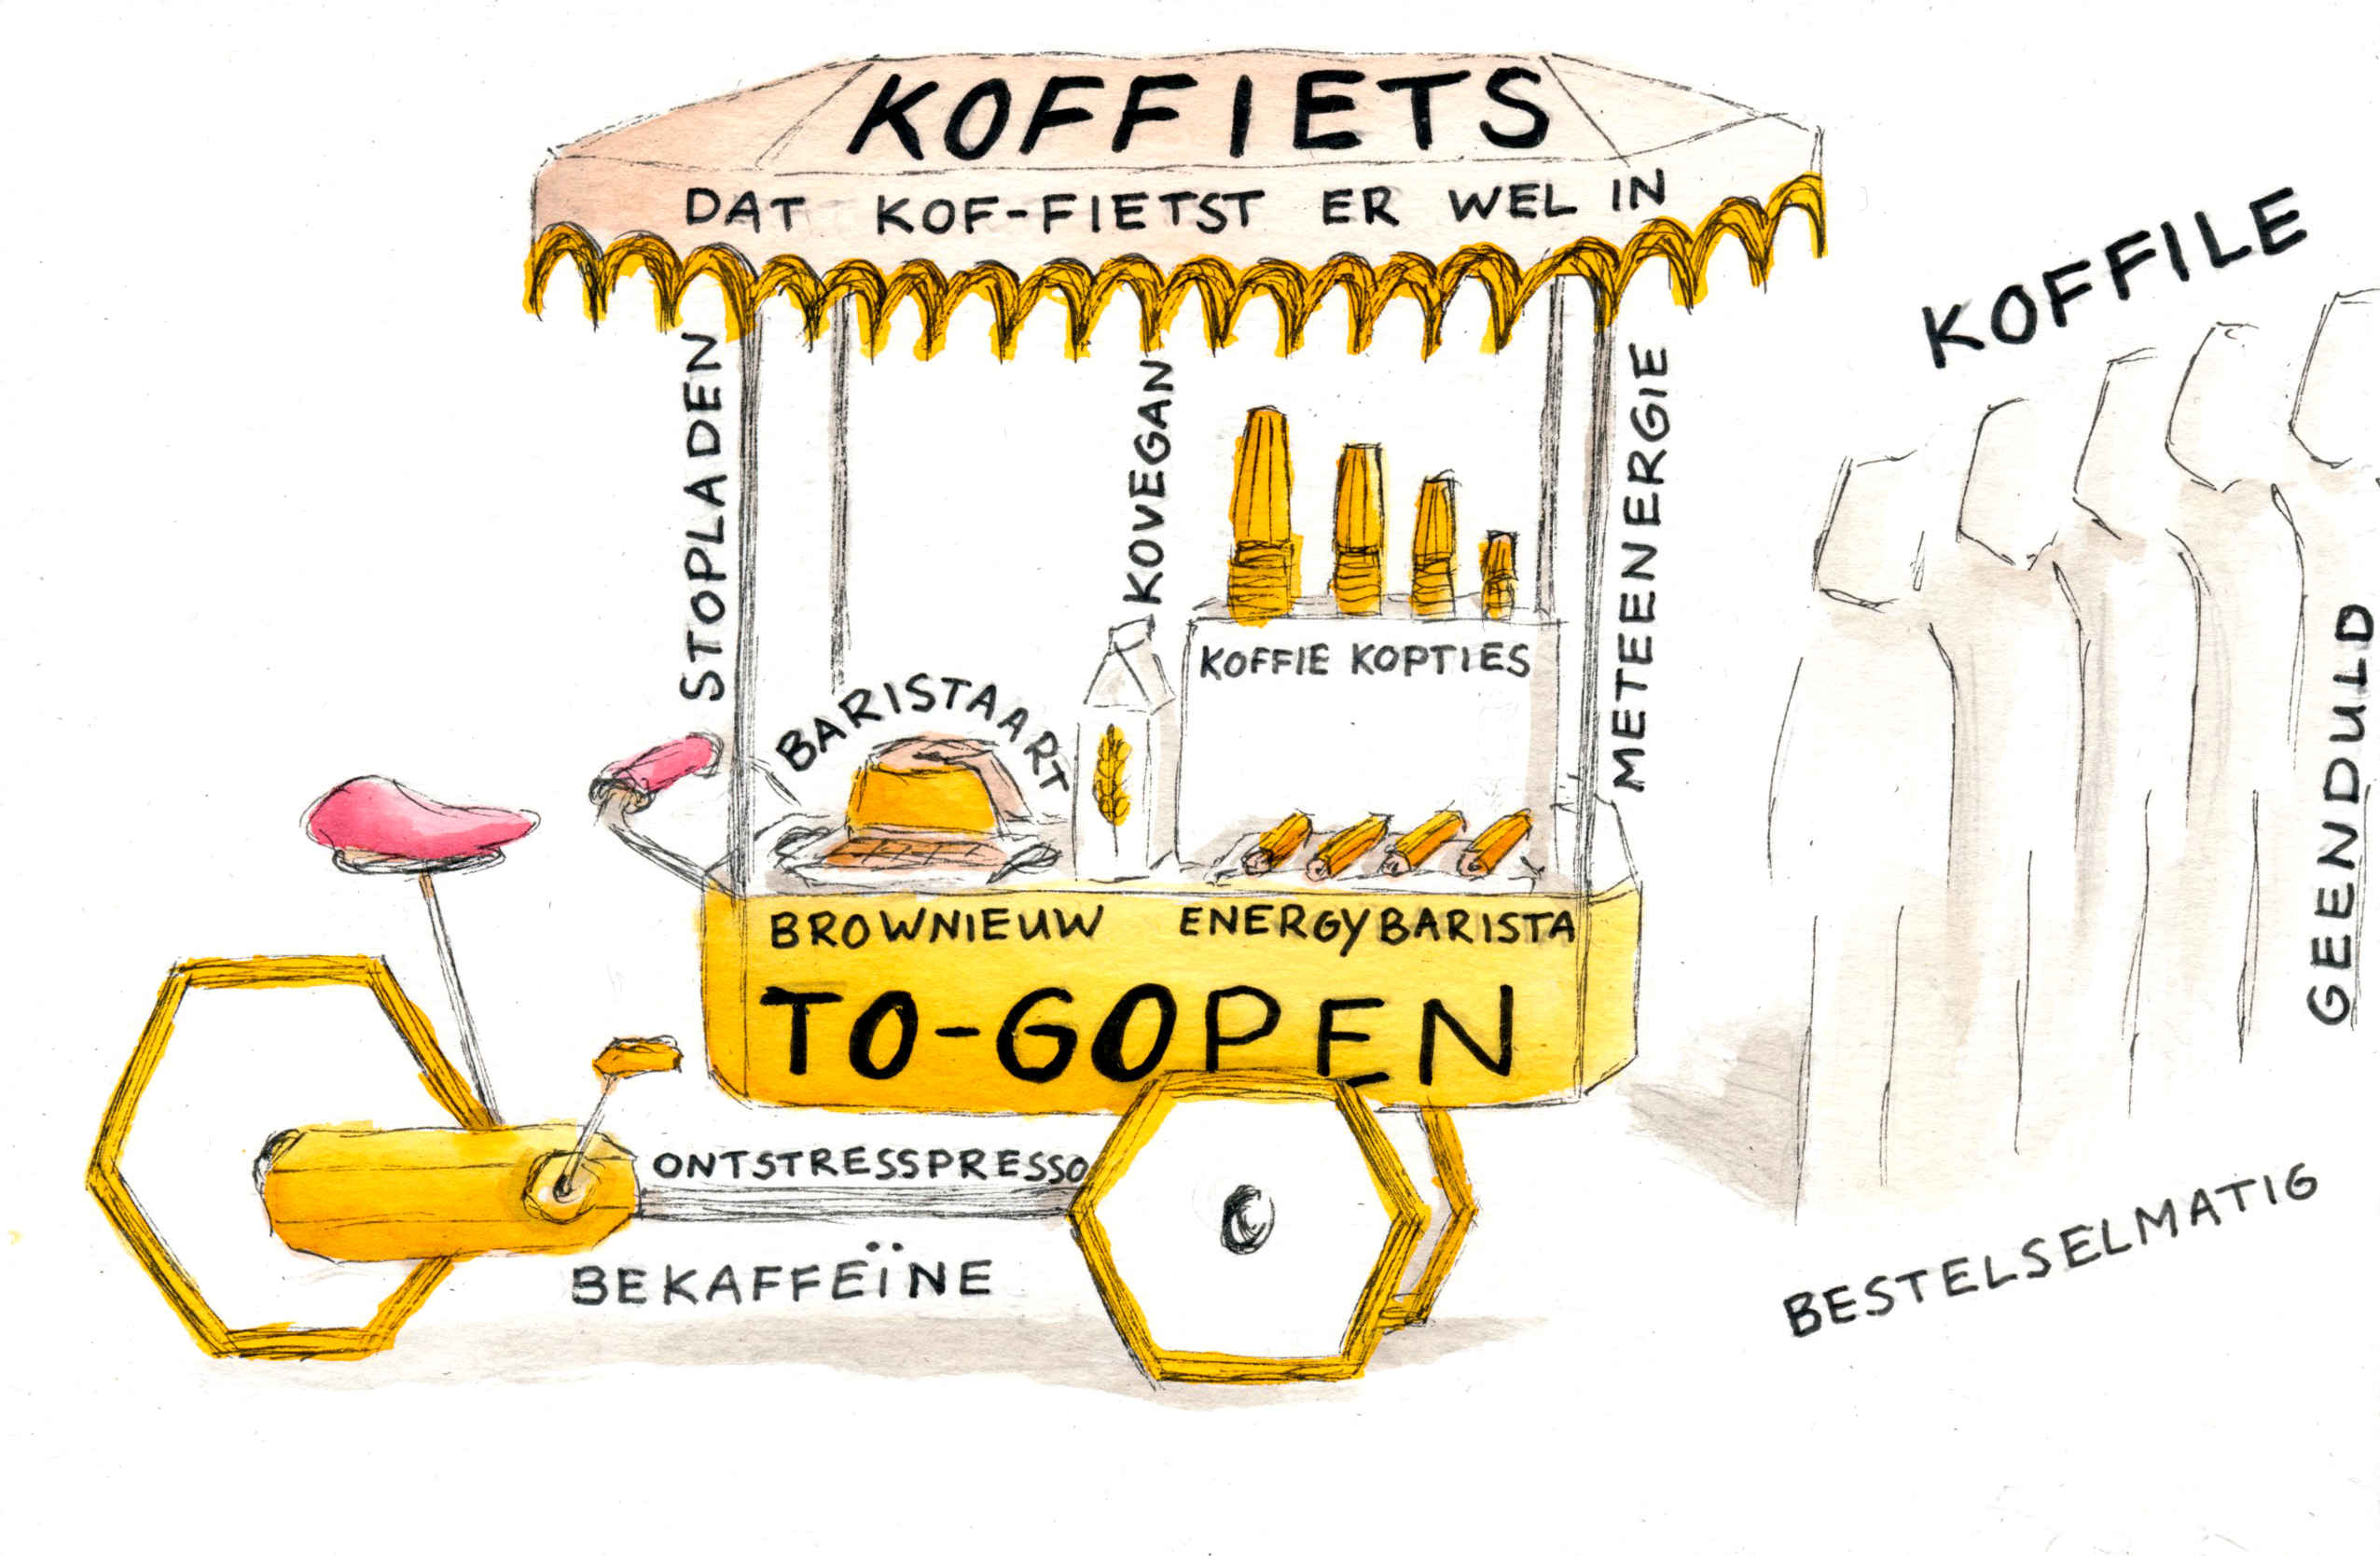 KOFFIETS
DAT KOF-FIETST ER WEL IN
KOFFILE
STOPLADEN
KOVEGAN
METEENERGIE
KOFFIE KOPTIES
BARISTAART
GEENDULD
BROWNIEUW ENERGYBARISTA
TO-GOPEN
ONTSTRESSPRESSO
BEKAFFEÏNE
BESTELSELMATIG